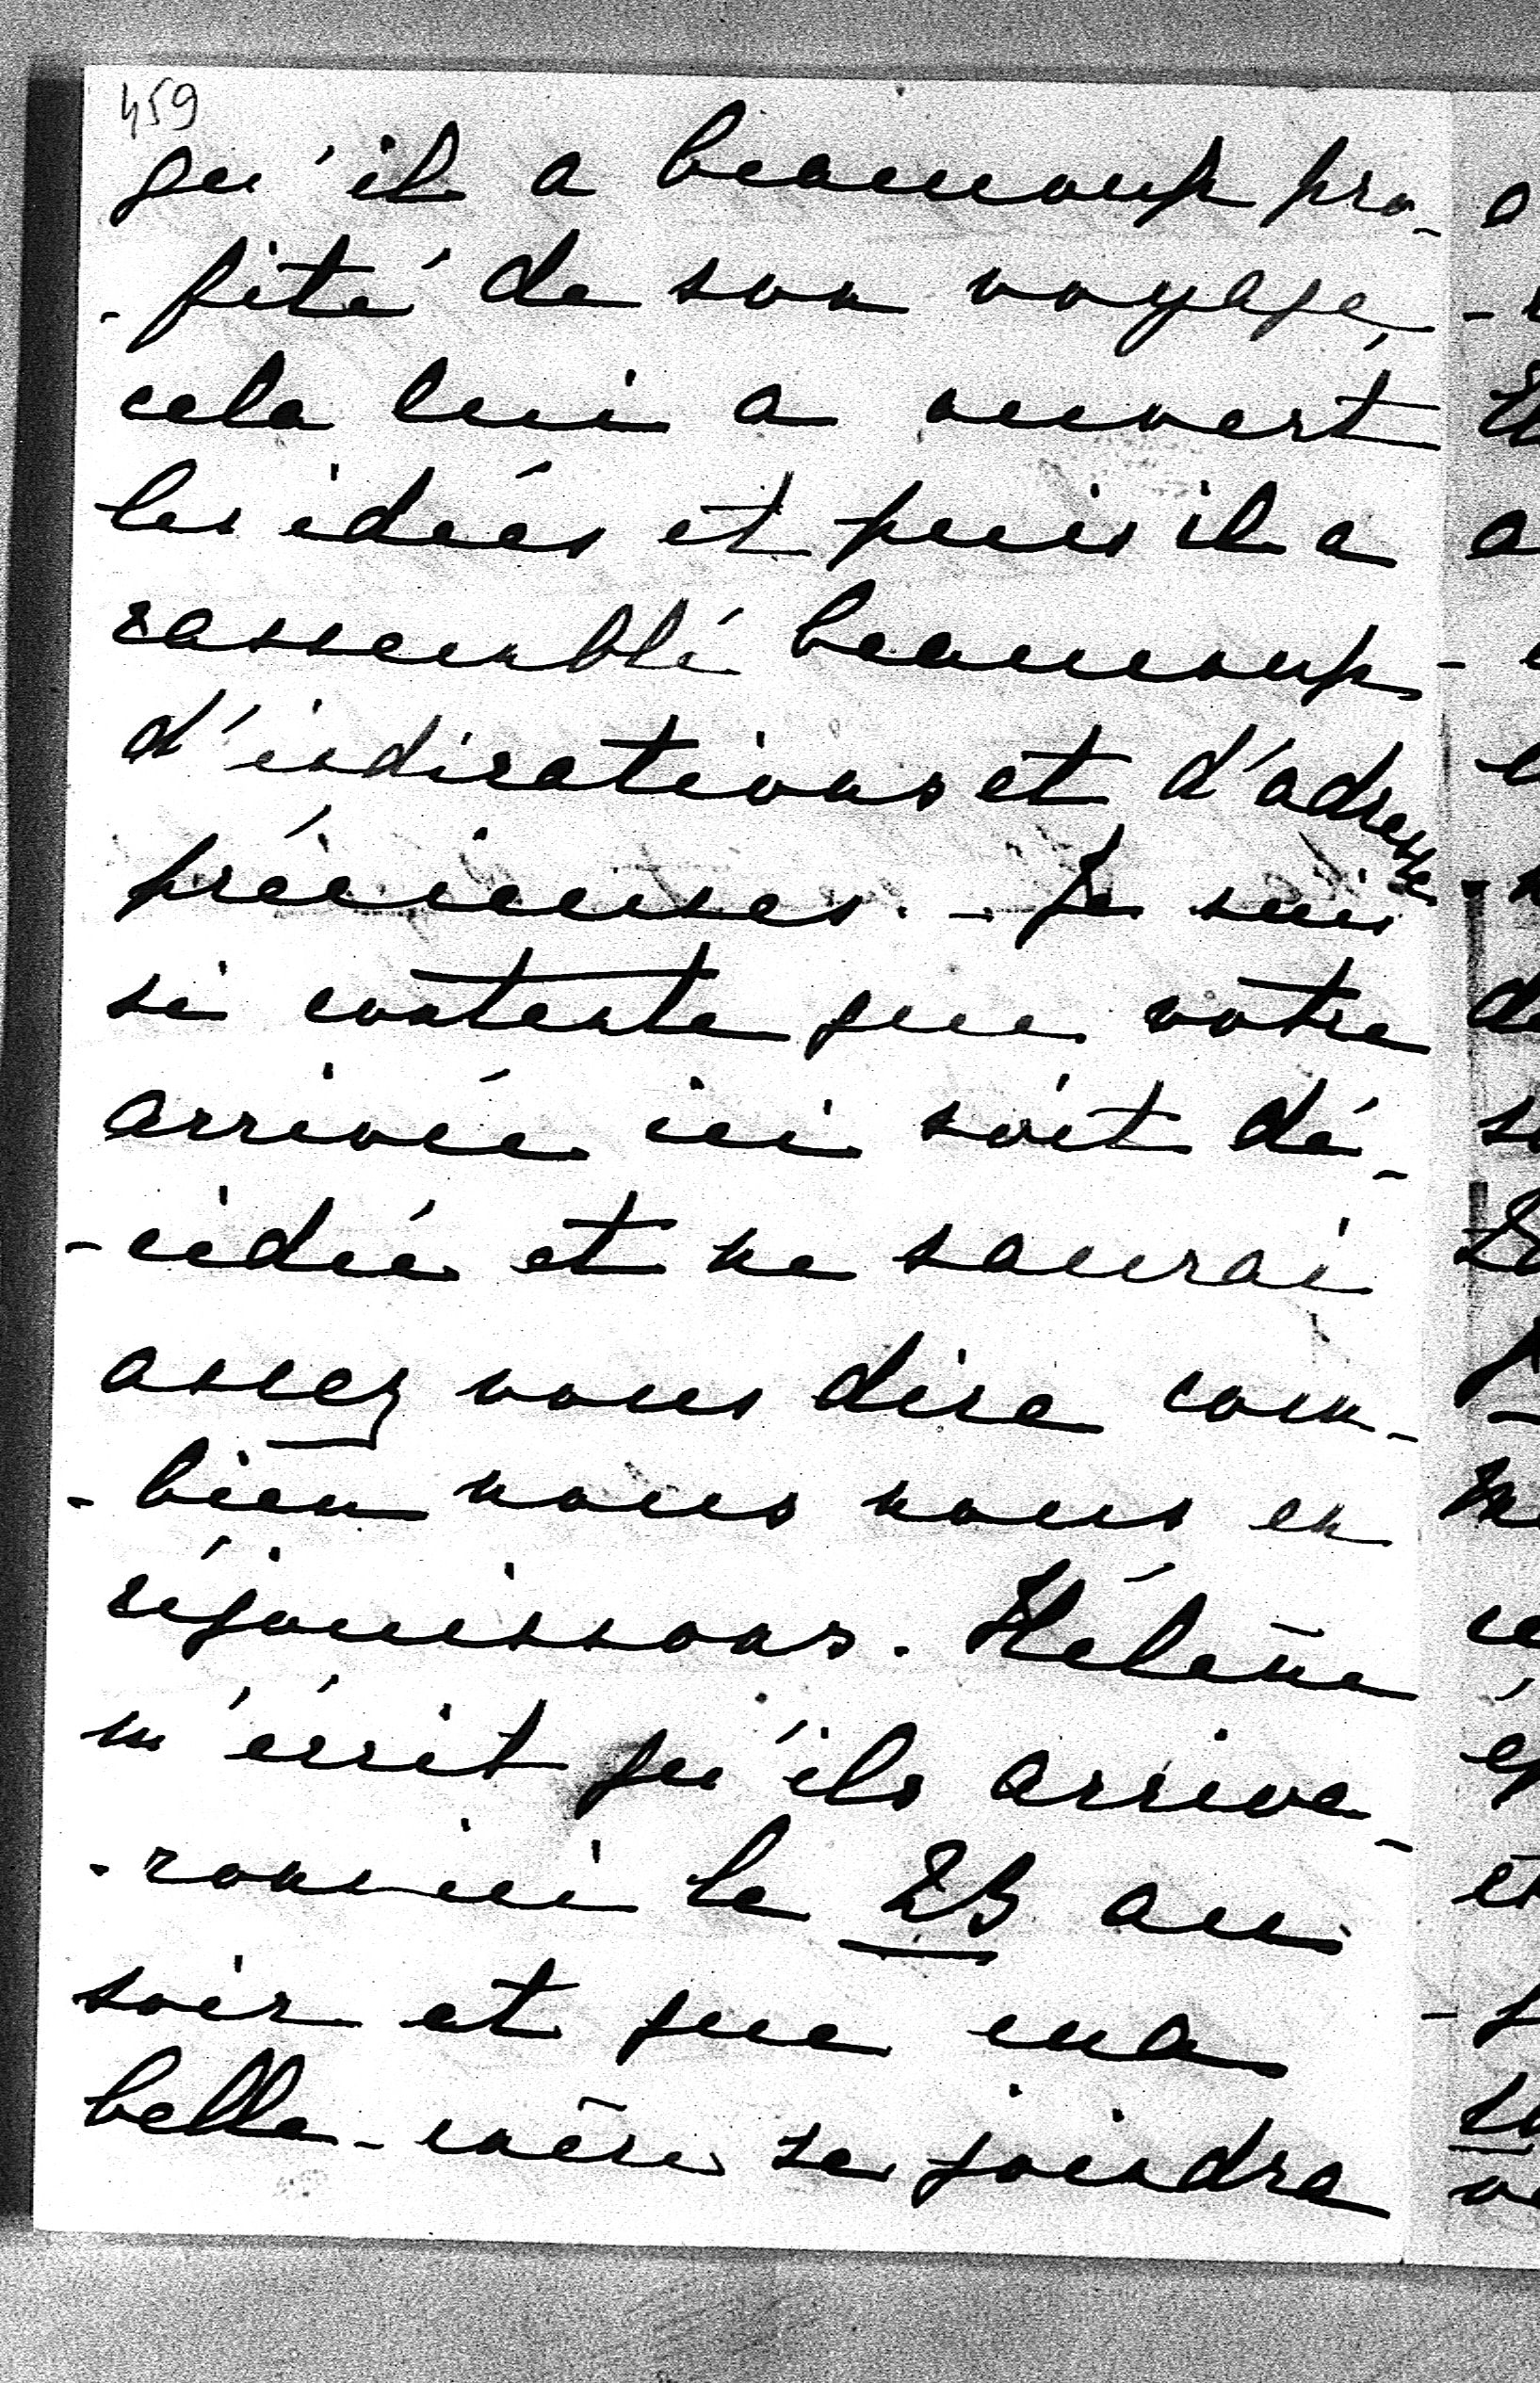 459
qu'il a beaucoup pro-
-fité de son voyage,
cela lui a ouvert
les idées et puis il a
rassemblé beaucoup
d'indications et d'adresses
précieuses. - Je suis
si contente que votre
arrivée ici soit dé-
-cidée et ne saurai
assez vous dire com-
-bien nous nous en
réjouissons. Hélène
m'écrit qu'ils arrive-
-ront ici le 23 au
soir et que ma
belle-mère se joindra